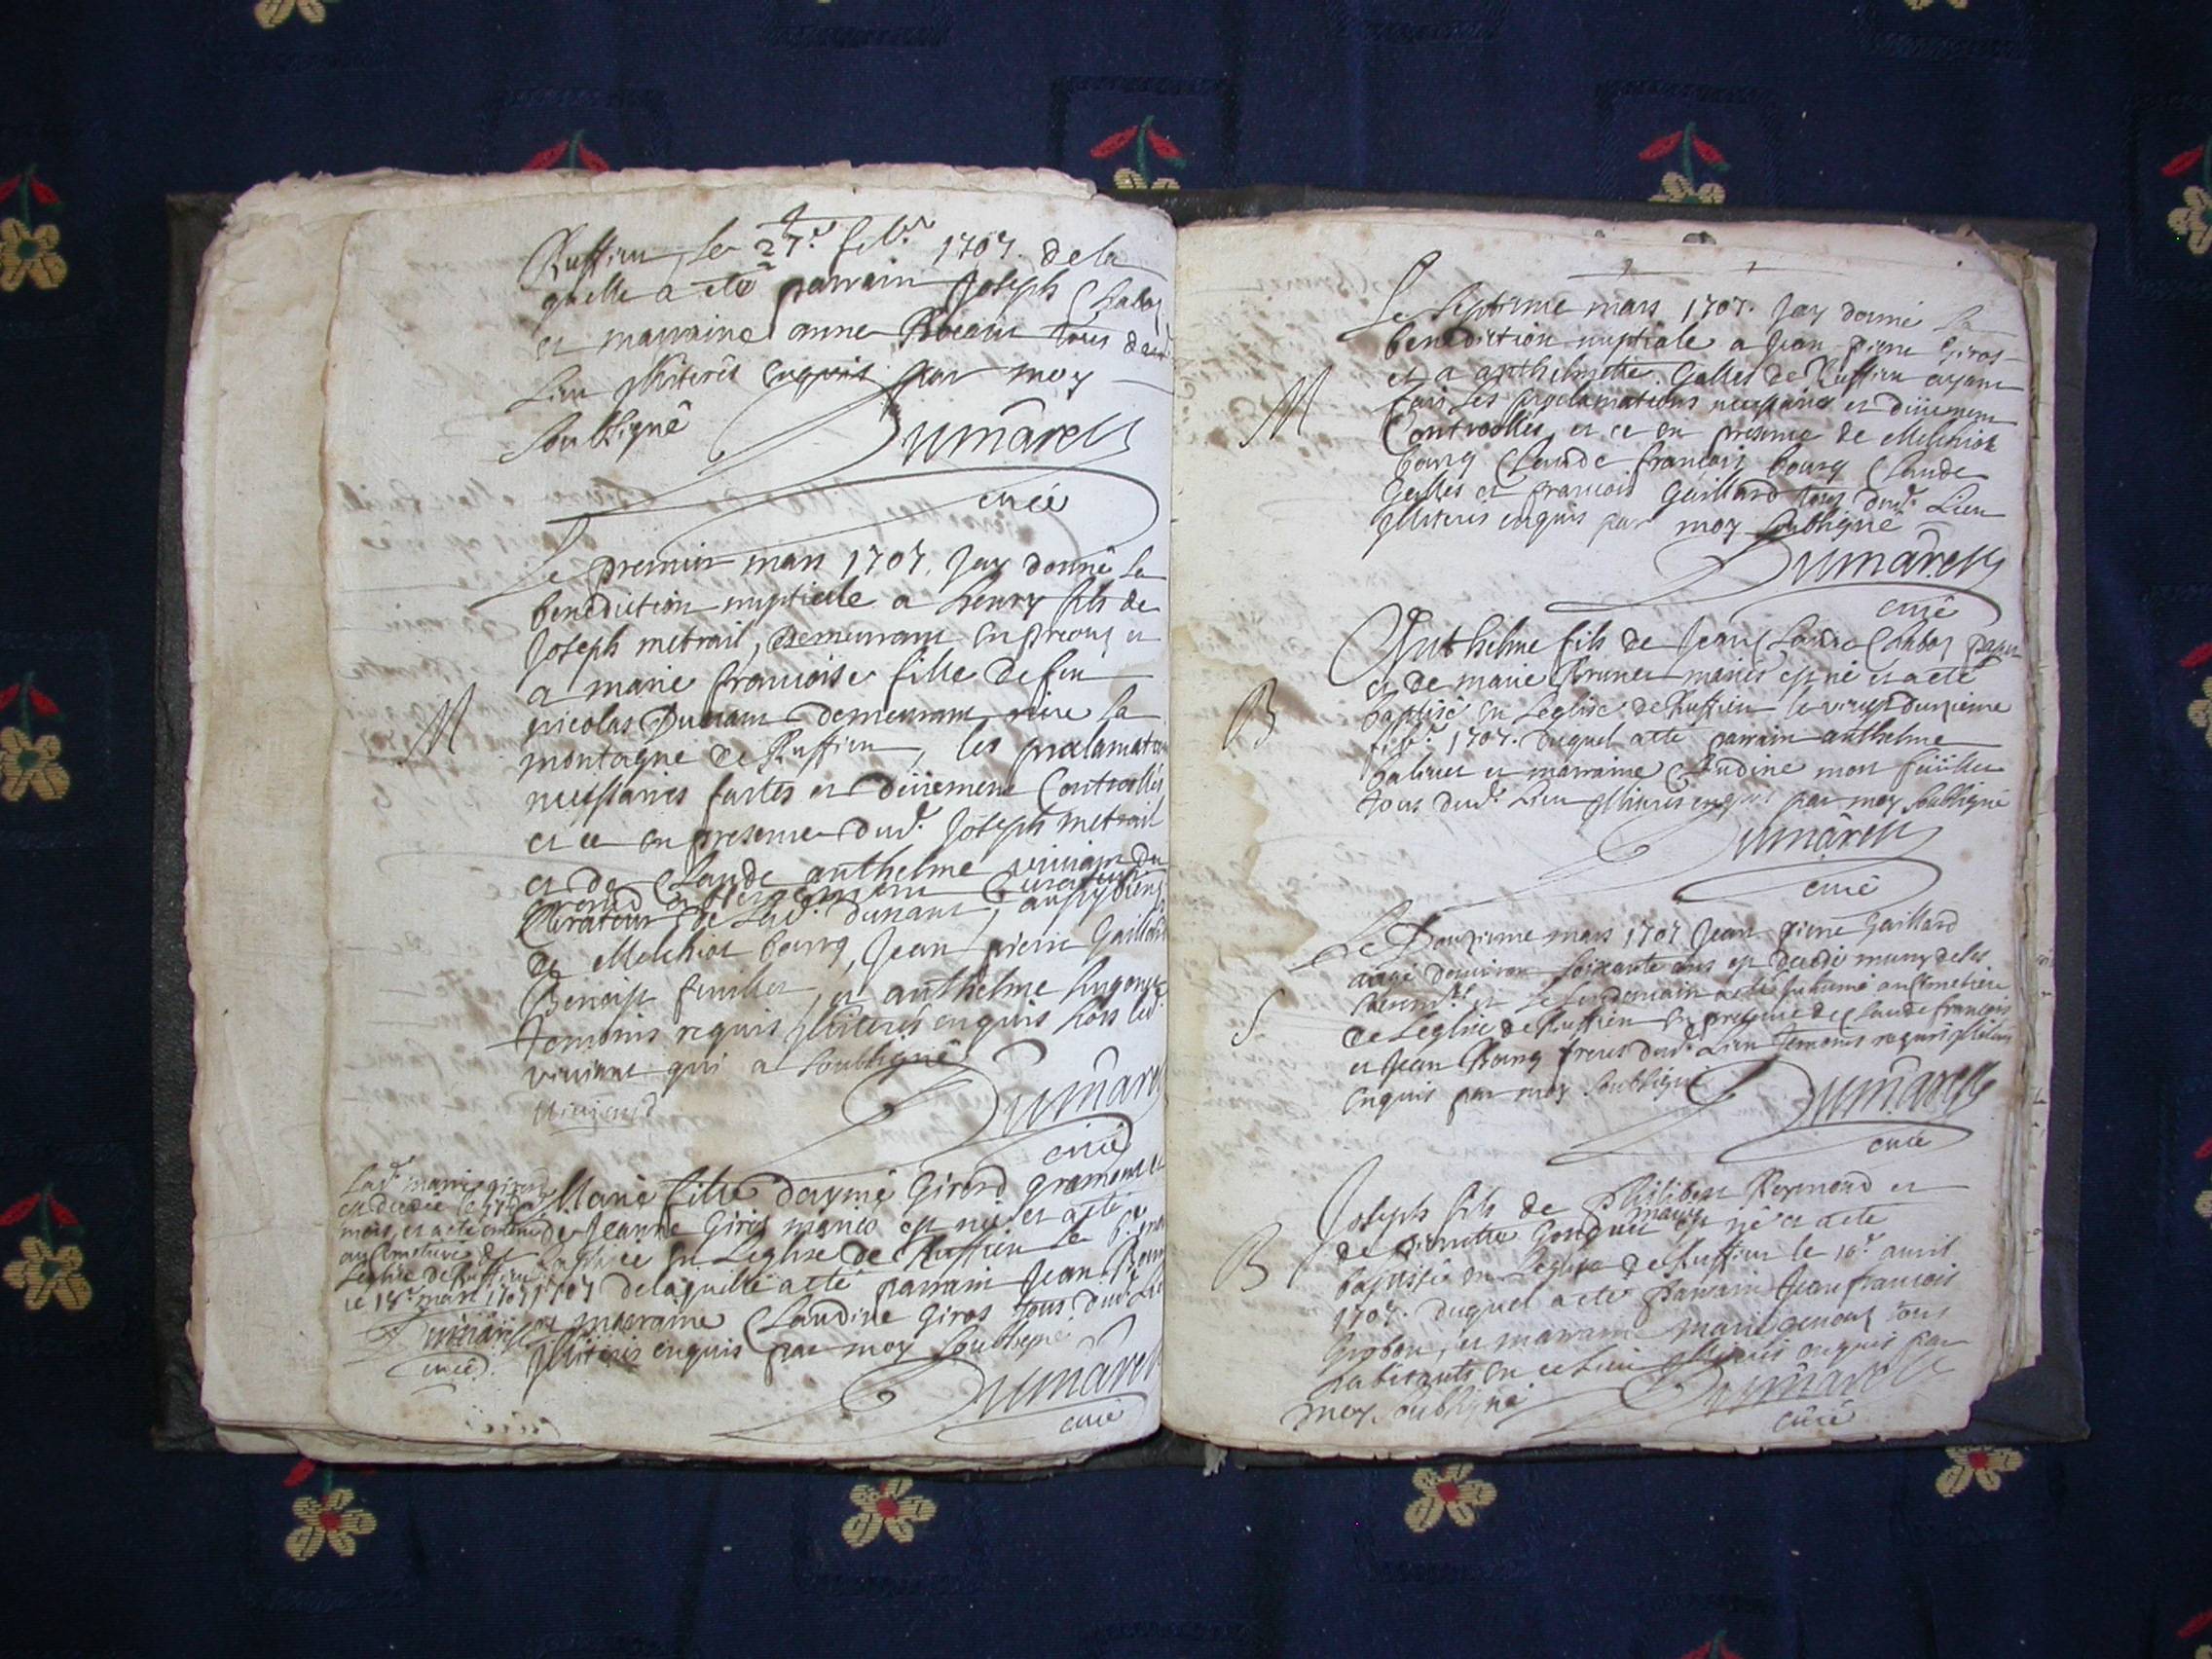 Ruffieu, le 27.e febr. 1707. de la
quelle a eté parrain Joseph Chaboz
et marraine anne tous dud.
Lieu illiterés enquis par moy
soubsigné
Dumarest
curé
Le premier mars 1707. Jay donné la
benediction nuptiale a henry fils de
Joseph metrail, demeurant en et
a marie francoise fille de feu
nicolas Dunant demeurant riere la
montagne de Ruffieu, les proclamations
necessaires faites et düement Controollés
et ce en presence dud. Joseph metrail
et de Claude anthelme viviant du
grand
Curateur de lad. dunant,
de Melchiot bourg, Jean pierre Gaillard
Benoist feuillet, et anthelme hugonet
temoins requis illiterés enquis hors led.
viviant qui a soubsigné
Dumarest
curé
M
Lad. marie girord
est decedée le
mars, et a eté enterré
au cimetiere de
Leglise de Ruffieu
le 18.e mars 1707
Dumarest
curé
Marie fille daymé Girord
de Jeanne Giros mariés est née et a eté
baptisée en Leglise de Ruffieu le 6.e mars
1707 de laquelle a eté parrain Jean Bourg
et marraine Claudine Giros tous dud. Lieu
illiterés enquis par moy soubsigné
Dumarest
curé
Le septieme mars 1707. Jay donné la
benediction nuptiale a Jean pierre Giros
et a anthelmette Galles de Ruffieu ayant
fait les proclamations necessaires et düement
Controollés, et ce en presence de Melchiot
bourg Claude francois bourg Claude
Galles et francois Gaillard tous dud. Lieu
illiterés enquis par moy soubsigné
Dumarest
curé
M
Anthelme fils de Jean Claude Chaboz
et de marie brunet mariés est né et a eté
baptisé en Leglise de Ruffieu le vingt deuxieme
febr. 1707. duquel a eté parrain anthelme
balivet et marraine Claudine mon feüillet
tous dud. Lieu illiterés enquis par moy soubsigné
Dumarest
curé
B
Le Douzieme mars 1707 Jean pierre Gaillard
aagé denviron soixante ans est decedé muny de ses
sacem.ts et le lendemain a eté inhumé au cimetiere
de Leglise de Ruffieu en presence de Claude francois
et Jean Bourg freres dud. Lieu temoins requis illiterés
enquis par moy soubsigné
Dumarest
curé
S
Joseph fils de Philibert Reymond et
de pierrette Gonduet mariés est né et a eté
baptisé en Leglise de Ruffieu le 10.e avril
1707. duquel a eté parrain Jean francois
Grobon, et marraine marie genoud tous
habitants en ce lieu illiterés enquis par
moy soubsigné
Dumarest
curé
B